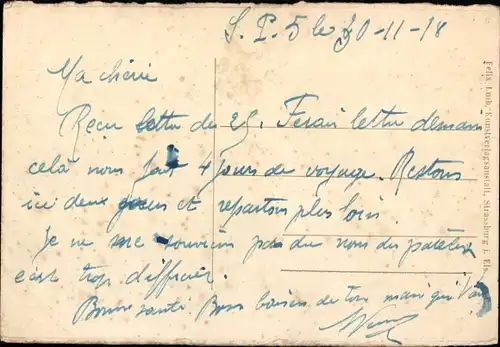 S. P. 5 le 30-11-18
Ma chérie
Reçu lettre du 25. Ferai lettre demain
celà nous fait 4 jours de voyage. Restons
ici deux jours et repartons plus loin.
Je ne me souviens pas du nom du patelin
c'est trop difficile.
Bonne santé Bons baisers de ton mari qui t'aime
Felix Luib, Kunstverlagsanstalt, Strassburg i. Els.